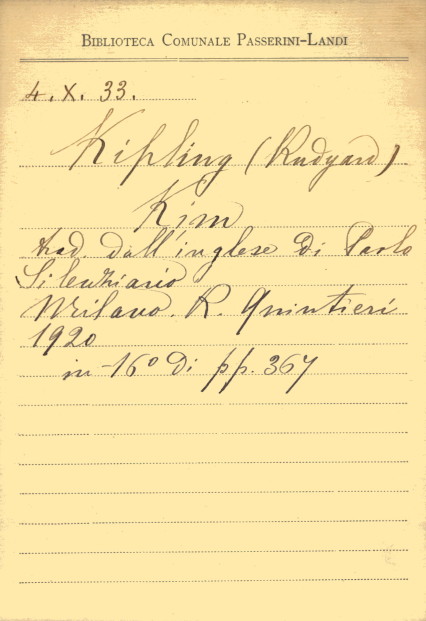 BIBLIOTECA COMUNALE PASSERINI-LANDI
4. X. 33.
Kipling (Rudyard)
Kim
trad. dall'inglese di Paolo
Silenziario
Milano. R. Quintieri
1920
in 16º di pp. 367